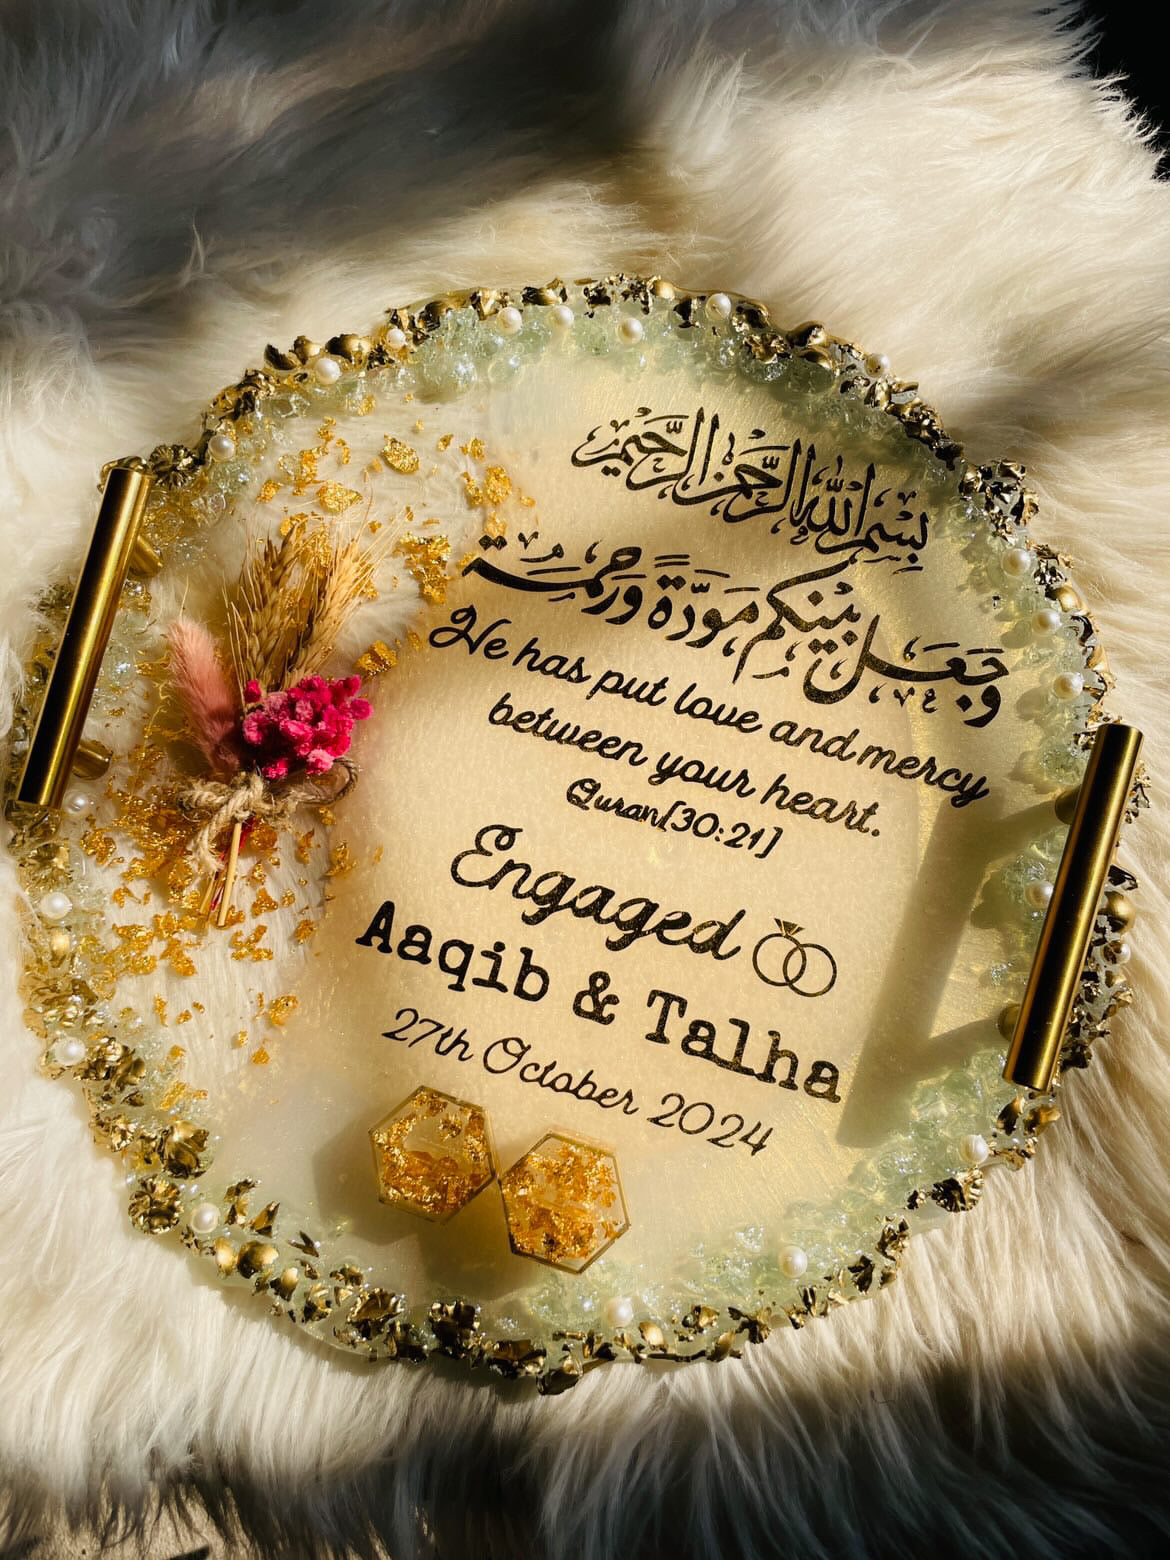 بِسْمِ اللهِ الرَّحْمٰنِ الرَّحِيْمِ
وَجَعَلَ بَيْنَكُم مَوَدَّةً وَرَحمة
He has put love and mercy
between your heart.
Quran[30:21]
Engaged
Aaqib & Talha
27th October 2024